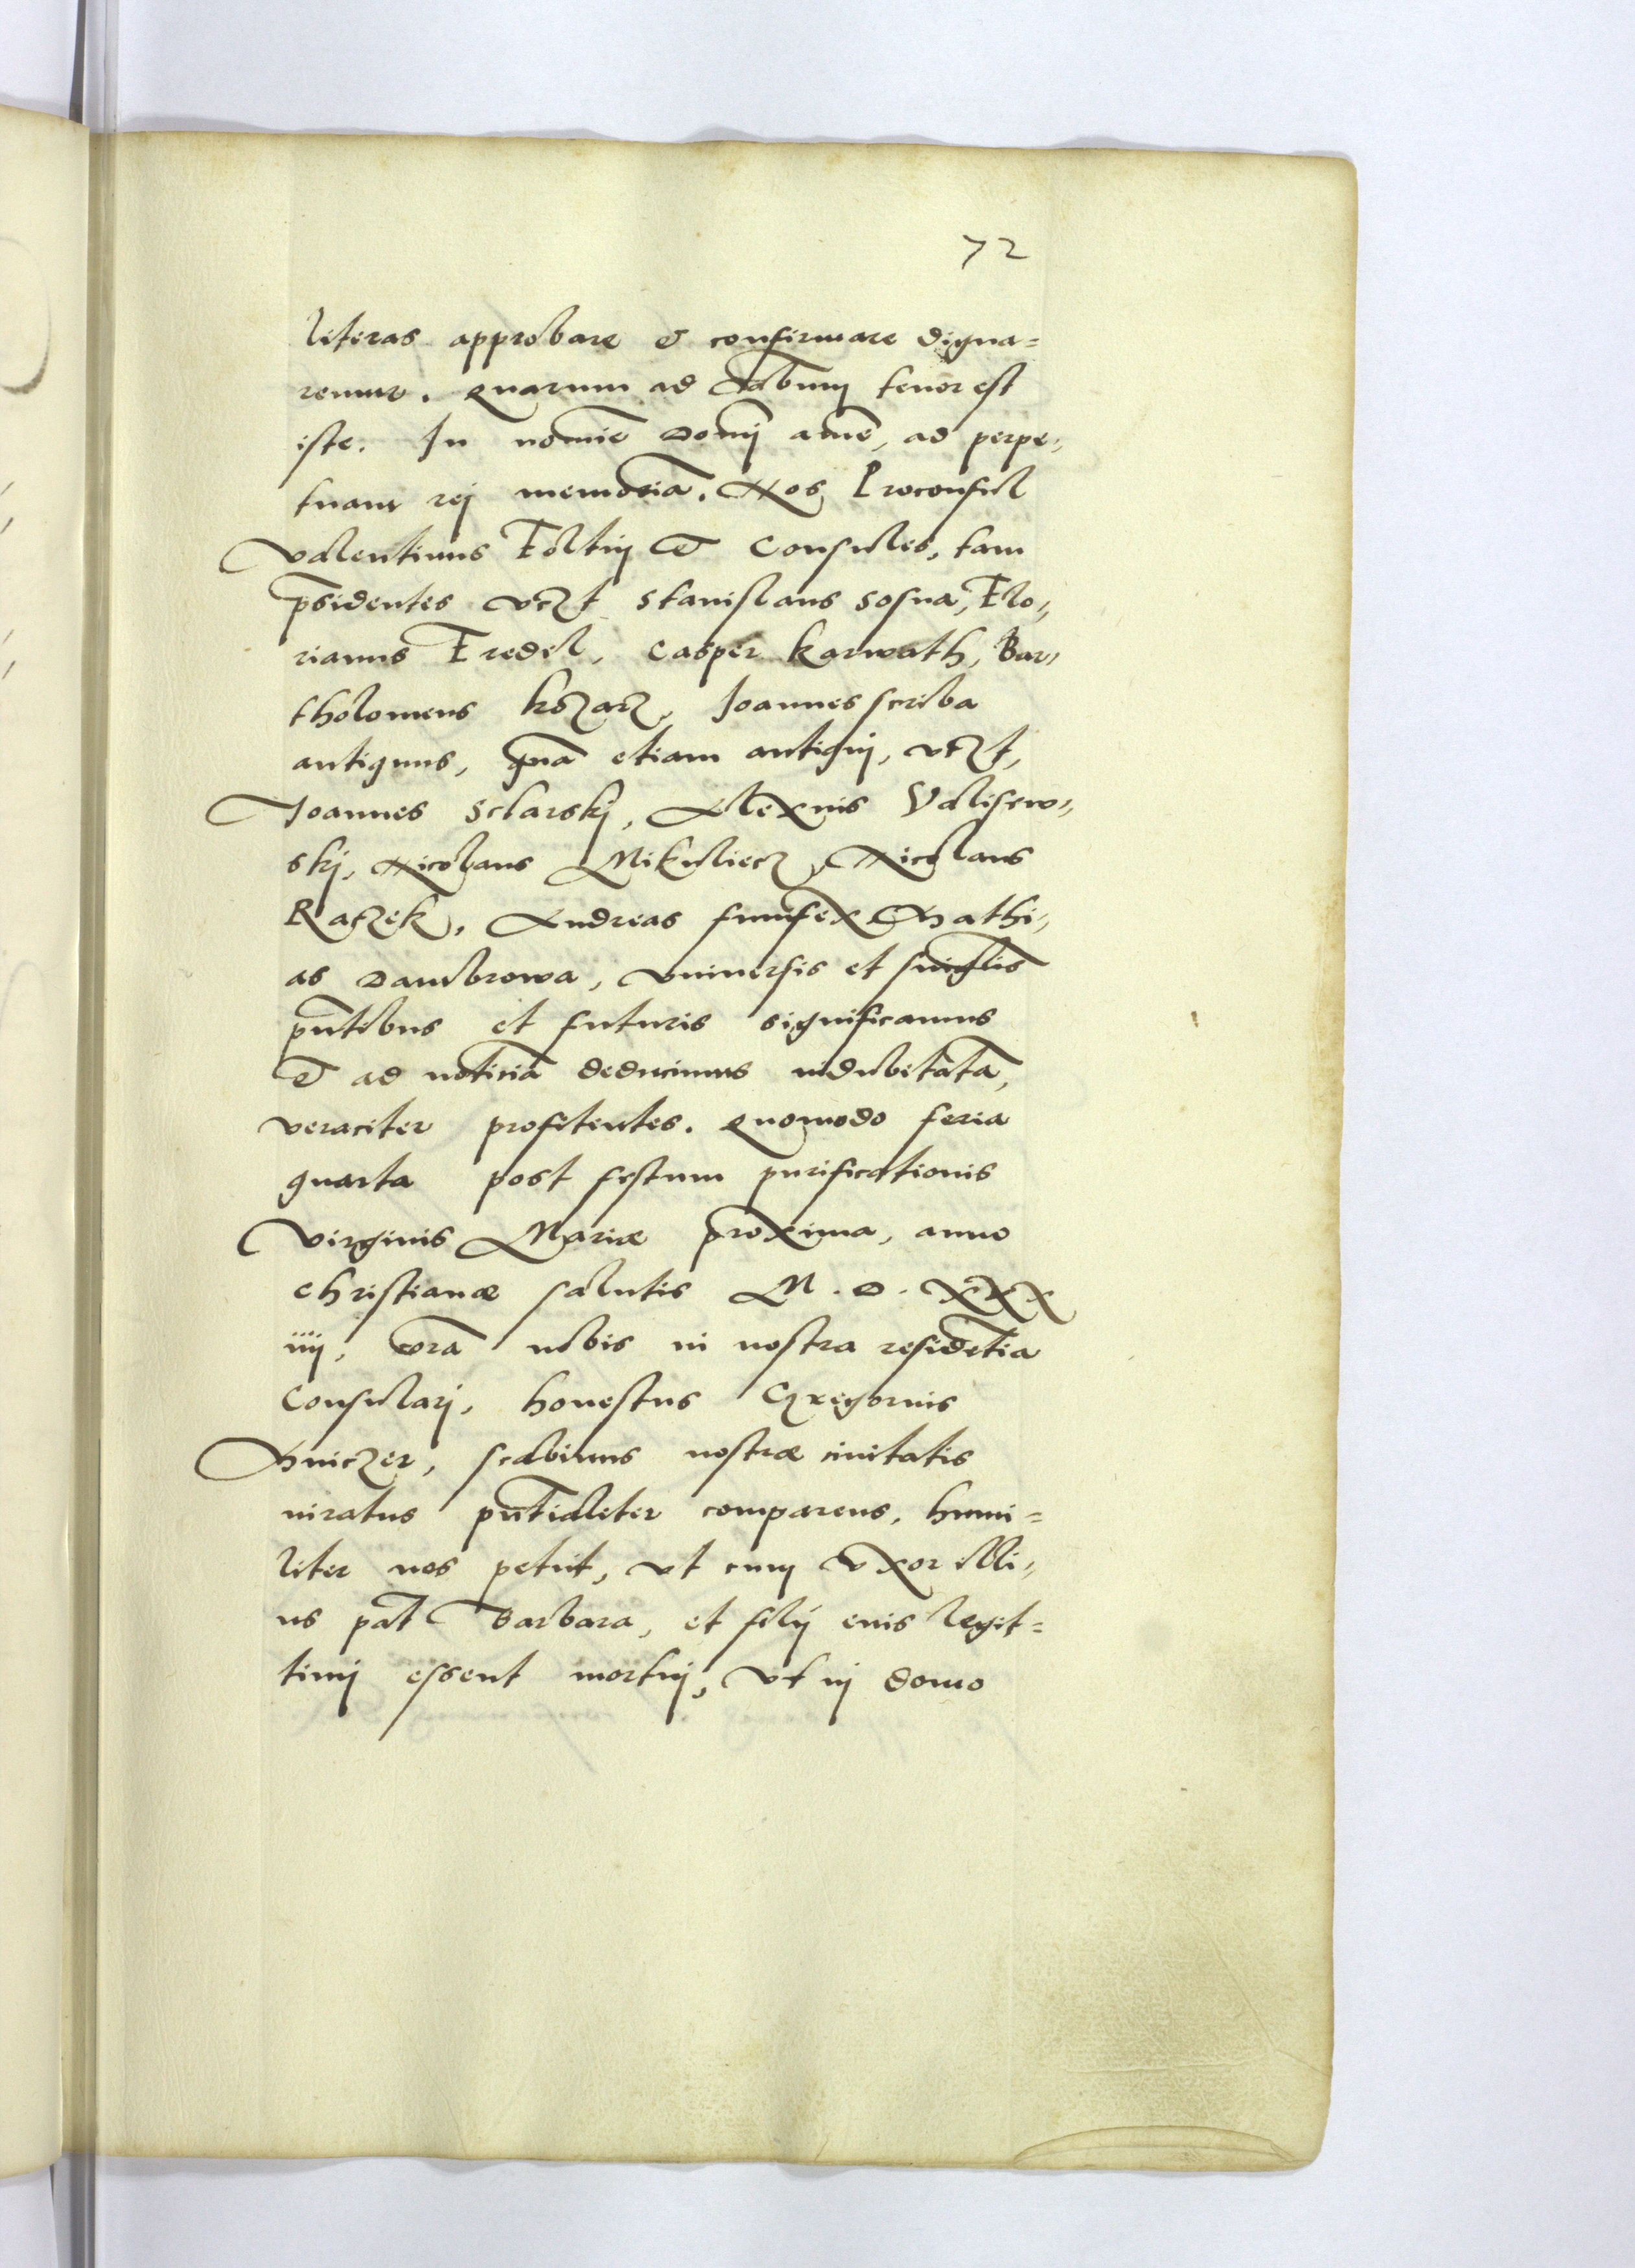 72
literas approbare & confirmare digna=
remur. Quarum ad v̄bum tenor est
iste. In nomīe Domĩ amē, ad perpe,,
tuam rei memoriā. Nos Proconsul
Valentinus Foltin & Consules, tam
p̄sidentes vcz̄t Stanislaus Sosna, Flo,,
rianus Fredel, Casper Karwath, Bar,,
tholomeus Kozarz, Joannes scriba
antiquus, quā etiam antiqui, vcz̄t,
Joannes Sclarski, Alexius Valisew,,
ski, Nicolaus Mikuliecz, Nicolaus
Raczek, Andreas funifex Mathi,,
as Dambrowa, vniuersis et sīglis
pn̄tibus et futuris significamus
& ad notitiā deducimus indubitatā,
veraciter profitentes. Quomodo feria
quarta post festum purificationis
Virginis Mariæ proxima, anno
Christianæ salutis M. D. XXX
iiij, corā nobis in nostra residētia
Consulari, honestus Gregorius
scabinus nostræ ciuitatis
iuratus pn̄tialiter comparens, humi=
liter nos petiit, vt cum vxor illi,,
us pāt Barbara, et filij eius legit=
timi essent mortui, vt in domo